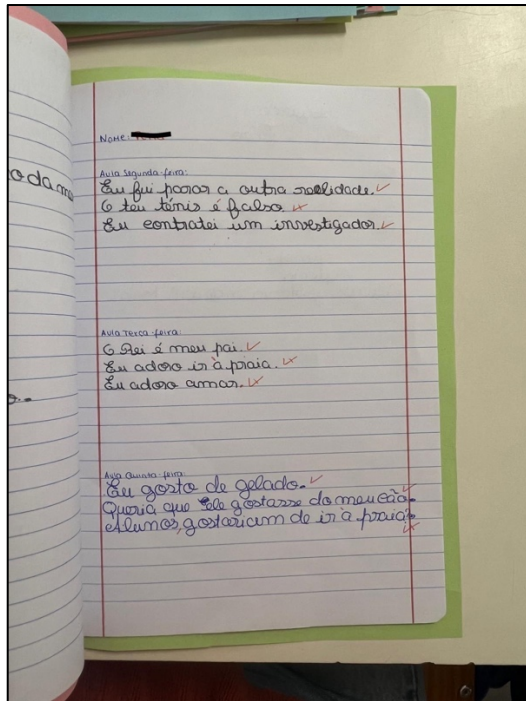 odame
o..
Nome:
Aula Segunda-feira:
Eu fui parar a outra realidade.
O teu ténis é falso.
Eu contratei um investigador.
Aula Terça-feira:
O Rei é meu pai.
Eu adoro ir à praia.
Eu adoro amar.
Aula Quinta-feira:
Eu gosto de gelado.
Queria que ele gostasse do meu cão.
Alunos, gostariam de ir à praia?